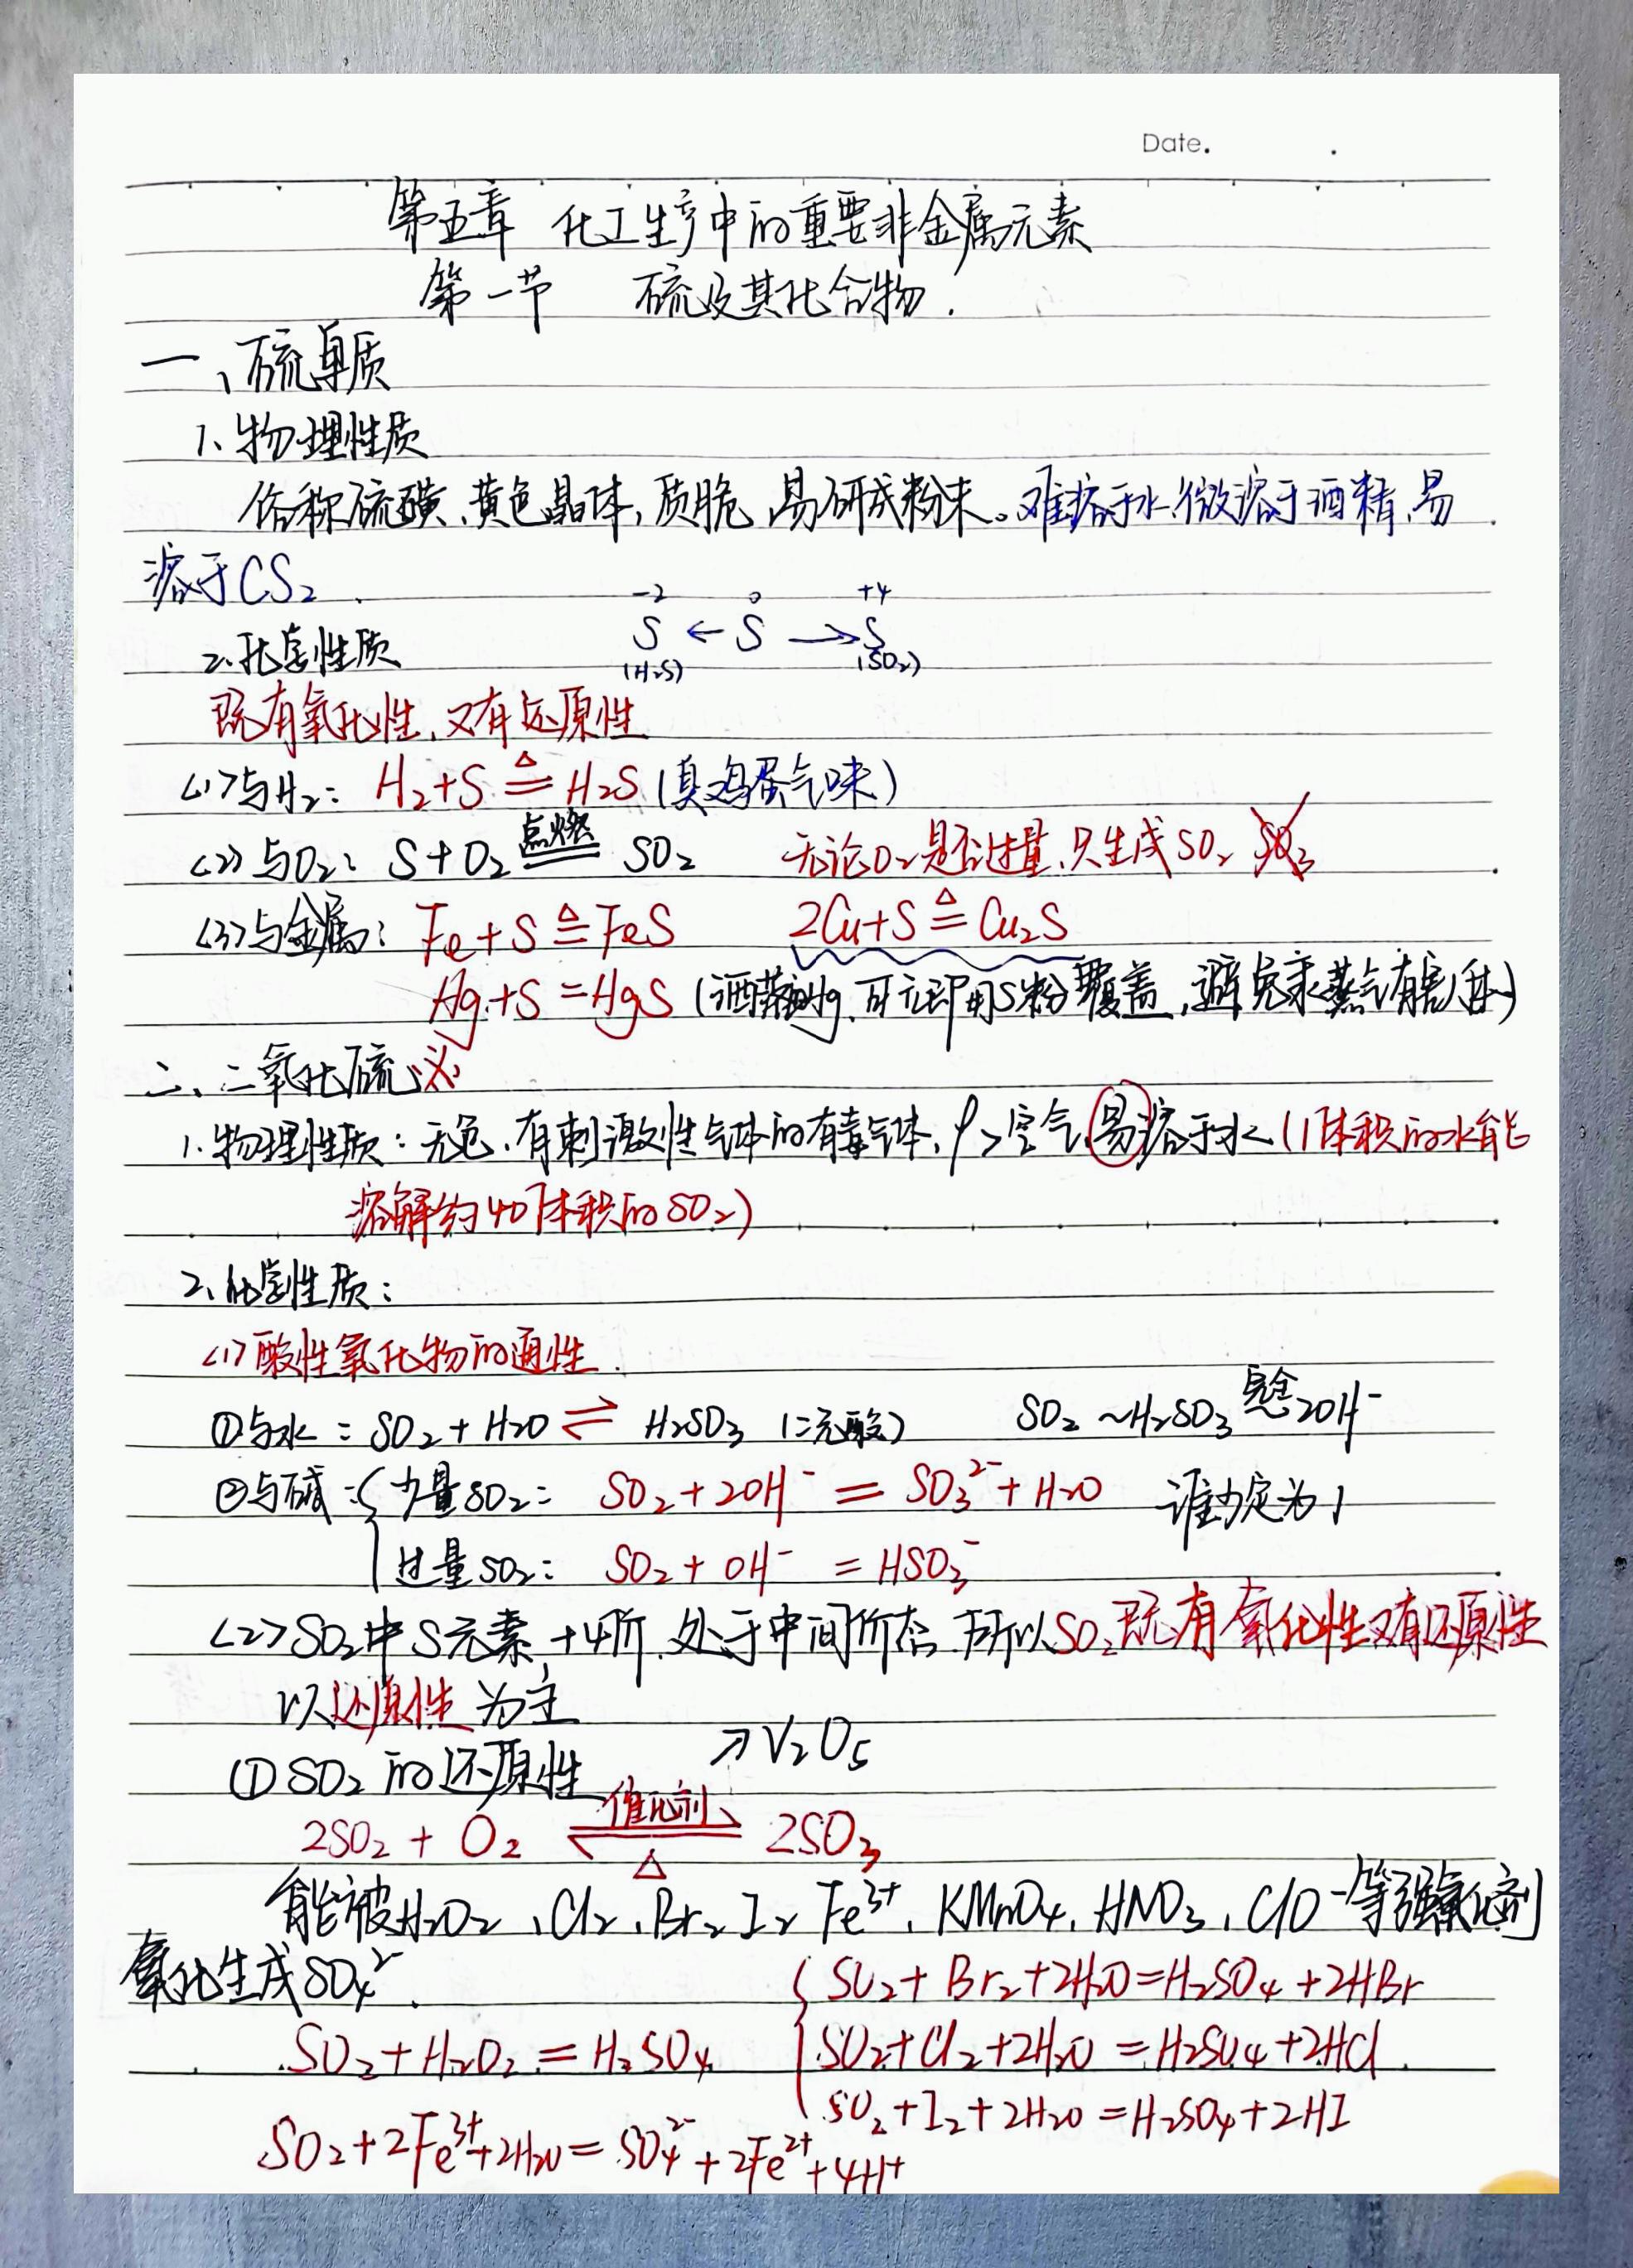 Date.
第五章 化工生产中的重要非金属元素
第一节 硫及其化合物.
一、硫单质
1、物理性质
俗称硫磺、黄色晶体,质脆,易研成粉末。难溶于水,微溶于酒精,易
溶于CS₂.
-2 0 +4
2.化学性质 S ← S → S
(H₂S) (SO₂)
既有氧化性,又有还原性
<1>与H₂: H₂+S ≜ H₂S (臭鸡蛋气味)
点燃
<2>与O₂: S+O₂ == SO₂ 无论O₂是否过量,只生成SO₂ SO₃
<3>与金属: Fe+S ≜ FeS 2Cu+S ≜ Cu₂S
Hg+S=HgS (洒落Hg,可立即用S粉覆盖,避免汞蒸气有害)
二、二氧化硫※
1.物理性质:无色、有刺激性气体的有毒气体,ρ>空气,易溶于水(1体积的水能
溶解约40体积的SO₂)
2、化学性质:
<1>酸性氧化物的通性.
①与水:SO₂+H₂O ⇌ H₂SO₃ (二元酸) SO₂~H₂SO₃ 完全 2OH⁻
②与碱:{少量SO₂: SO₂+2OH⁻=SO₃²⁻+H₂O 谁少定为1
过量SO₂: SO₂+OH⁻=HSO₃⁻
<2>SO₂中S元素+4价,处于中间价态,所以SO₂既有氧化性又有还原性
以还原性为主
↗V₂O₅
①SO₂的还原性
催化剂
2SO₂+O₂ ⇌ 2SO₃
△
能被H₂O₂、Cl₂、Br₂ I₂ Fe³⁺、KMnO₄、HNO₃、ClO⁻等强氧化剂
氧化生成SO₄²⁻.
{SO₂+Br₂+2H₂O=H₂SO₄+2HBr
SO₂+H₂O₂=H₂SO₄ SO₂+Cl₂+2H₂O=H₂SO₄+2HCl.
SO₂+I₂+2H₂O=H₂SO₄+2HI
SO₂+2Fe³⁺+2H₂O=SO₄²⁻+2Fe²⁺+4H⁺